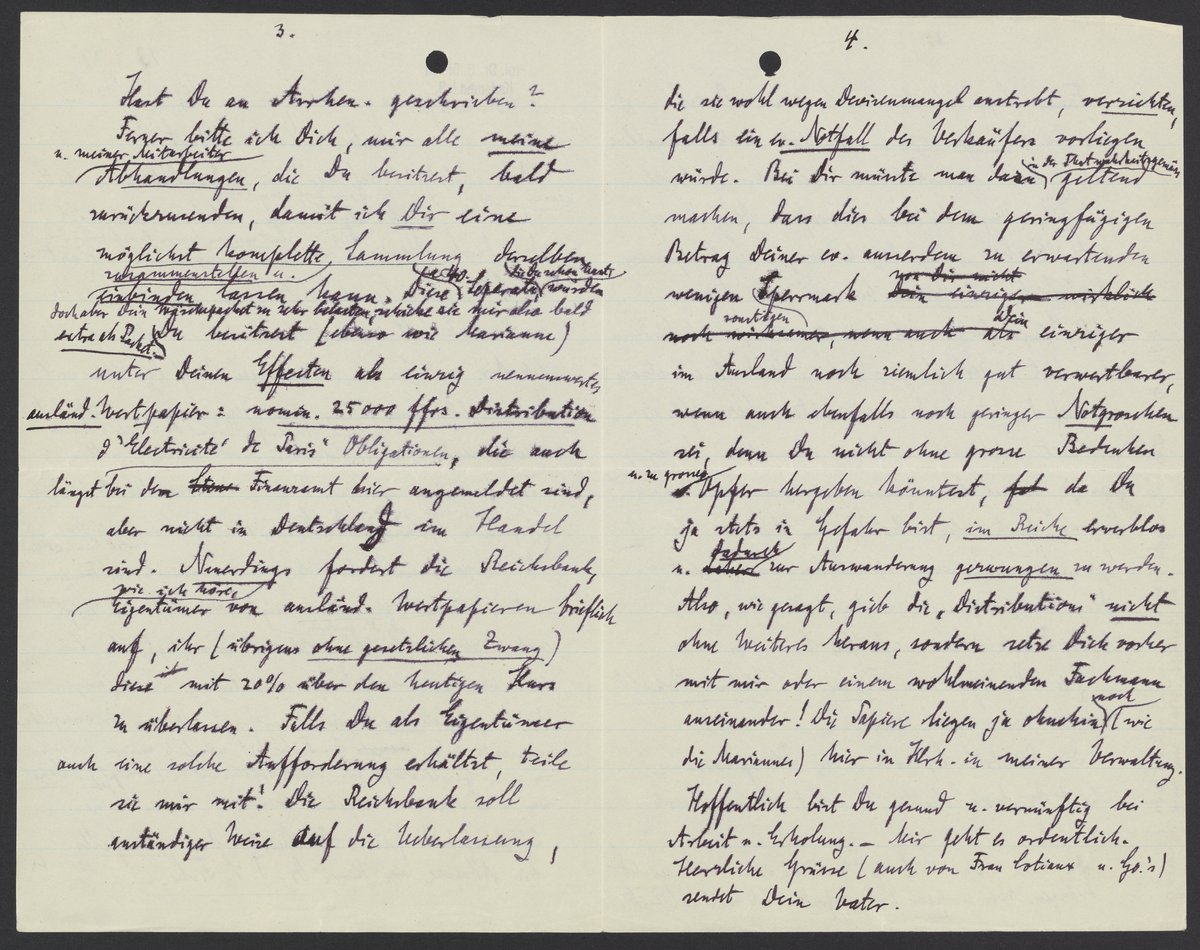 3.
Hast Du an Arrhen. geschrieben?
Ferner bitte ich Dich, mir alle meine
u. meiner Mitarbeiter
Abhandlungen, die Du besitzest, bald
zurückzusenden, damit ich Dir eine
möglichst komplette Sammlung derselben
zusammenstellen u.
einbinden lassen kann. Diese Separata würden
doch aber Dein zu sehr belasten, schicke sie mir also bald
extra als Packet.
Du besitzest (ebenso wie Marianne)
unter Deinen Effecten als einzig nennenswertes
ausländ. Wertpapier: nomin. 25000 ffrs. Distribution
d'Electricité de Paris Obligationen, die auch
längst bei dem Finanzamt hier angemeldet sind,
aber nicht in Deutschland im Handel
sind. Neuerdings fordert die Reichsbank,
wie ich höre,
Eigentümer von ausländ. Wertpapieren brieflich
auf, ihr (übrigens ohne gesetzlichen Zwang)
diese mit 20% über den heutigen Kurs
zu überlassen. Falls Du als Eigentümer
auch eine solche Aufforderung erhältst, teile
sie mir mit! Die Reichsbank soll
anständiger Weise auf die Ueberlassung,
4.
die sie wohl wegen Devisenmangel anstrebt, verzichten,
falls ein ev. Notfall des Verkäufers vorliegen
würde. Bei Dir müsste man dazu in der That wahrheitsgemäss geltend
machen, dass dies bei dem geringfügigen
Betrag Deiner ev. ausserdem zu erwartenden
von Dir nicht
wenigen Sperrmark Dein einziger wirklich
sonstigen
noch wirksamer, wenn auch als Dein einziger
im Ausland noch ziemlich gut verwertbarer,
wenn auch ebenfalls noch geringer Notgroschen
sei, denn Du nicht ohne grosse Bedenken
u. zu grosse
Opfer hergeben könntest, da Du
ja stets in Gefahr bist, im Reiche erwerblos
dadurch
u. zur Auswanderung gezwungen zu werden.
Also, wie gesagt, gieb die „Distributions" nicht
ohne Weiteres heraus, sondern setze Dich vorher
mit mir oder einem wohlmeinenden Fachmann
auseinander! Die Papiere liegen ja ohnehin noch (wie
die Mariannes) hier in in meiner Verwaltung.
Hoffentlich bist Du gesund u. vernünftig bei
Arbeit u. Erholung. – Mir geht es ordentlich.
Herzliche Grüsse (auch von Frau u. Go.'s)
sendet Dein Vater.